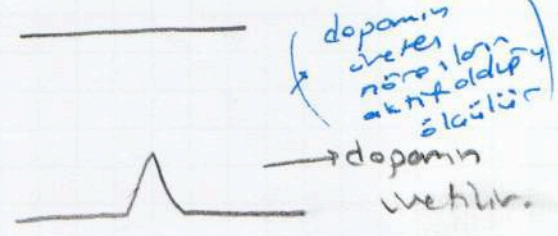 (dopamin
üreten
nöronların
aktif olduğu
ölçülür)
→dopamin
üretilir.